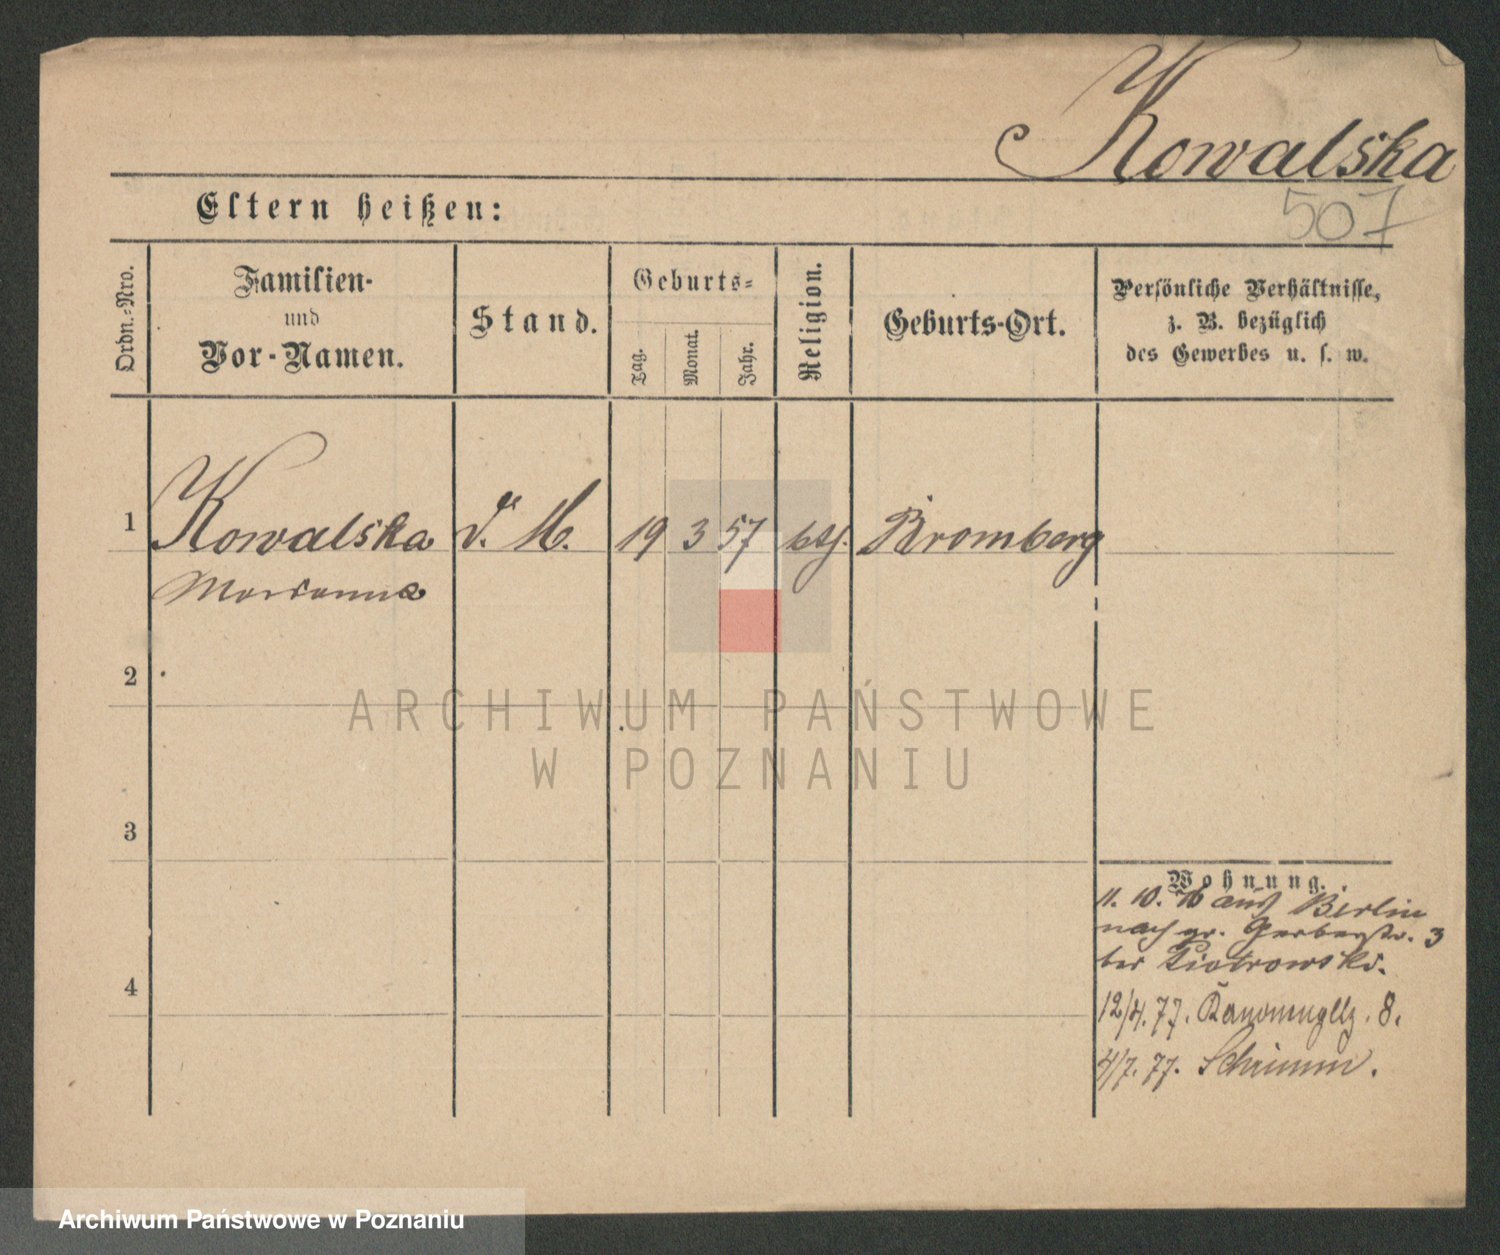 Kowalska
507
Eltern heißen:
Ordn.-Nro.
Familien-
und
Vor-Namen.
Stand.
Geburts-
Tag.
Monat.
Jahr.
Religion.
Geburts-Ort.
Persönliche Verhältnisse,
z. B. bezüglich
des Gewerbes u. s. w.
1
Kowalska
D. M.
19
3
57
kth.
Bromberg
Marianna
2
3
4
Wohnung.
11. 10. 76 aus Berlin
nach gr. Gerberstr. 3
bei Piotrowski.
12/4. 77. 8.
4/7. 77. Schrimm.
ARCHIWUM PAŃSTWOWE
W POZNANIU
Archiwum Państwowe w Poznaniu